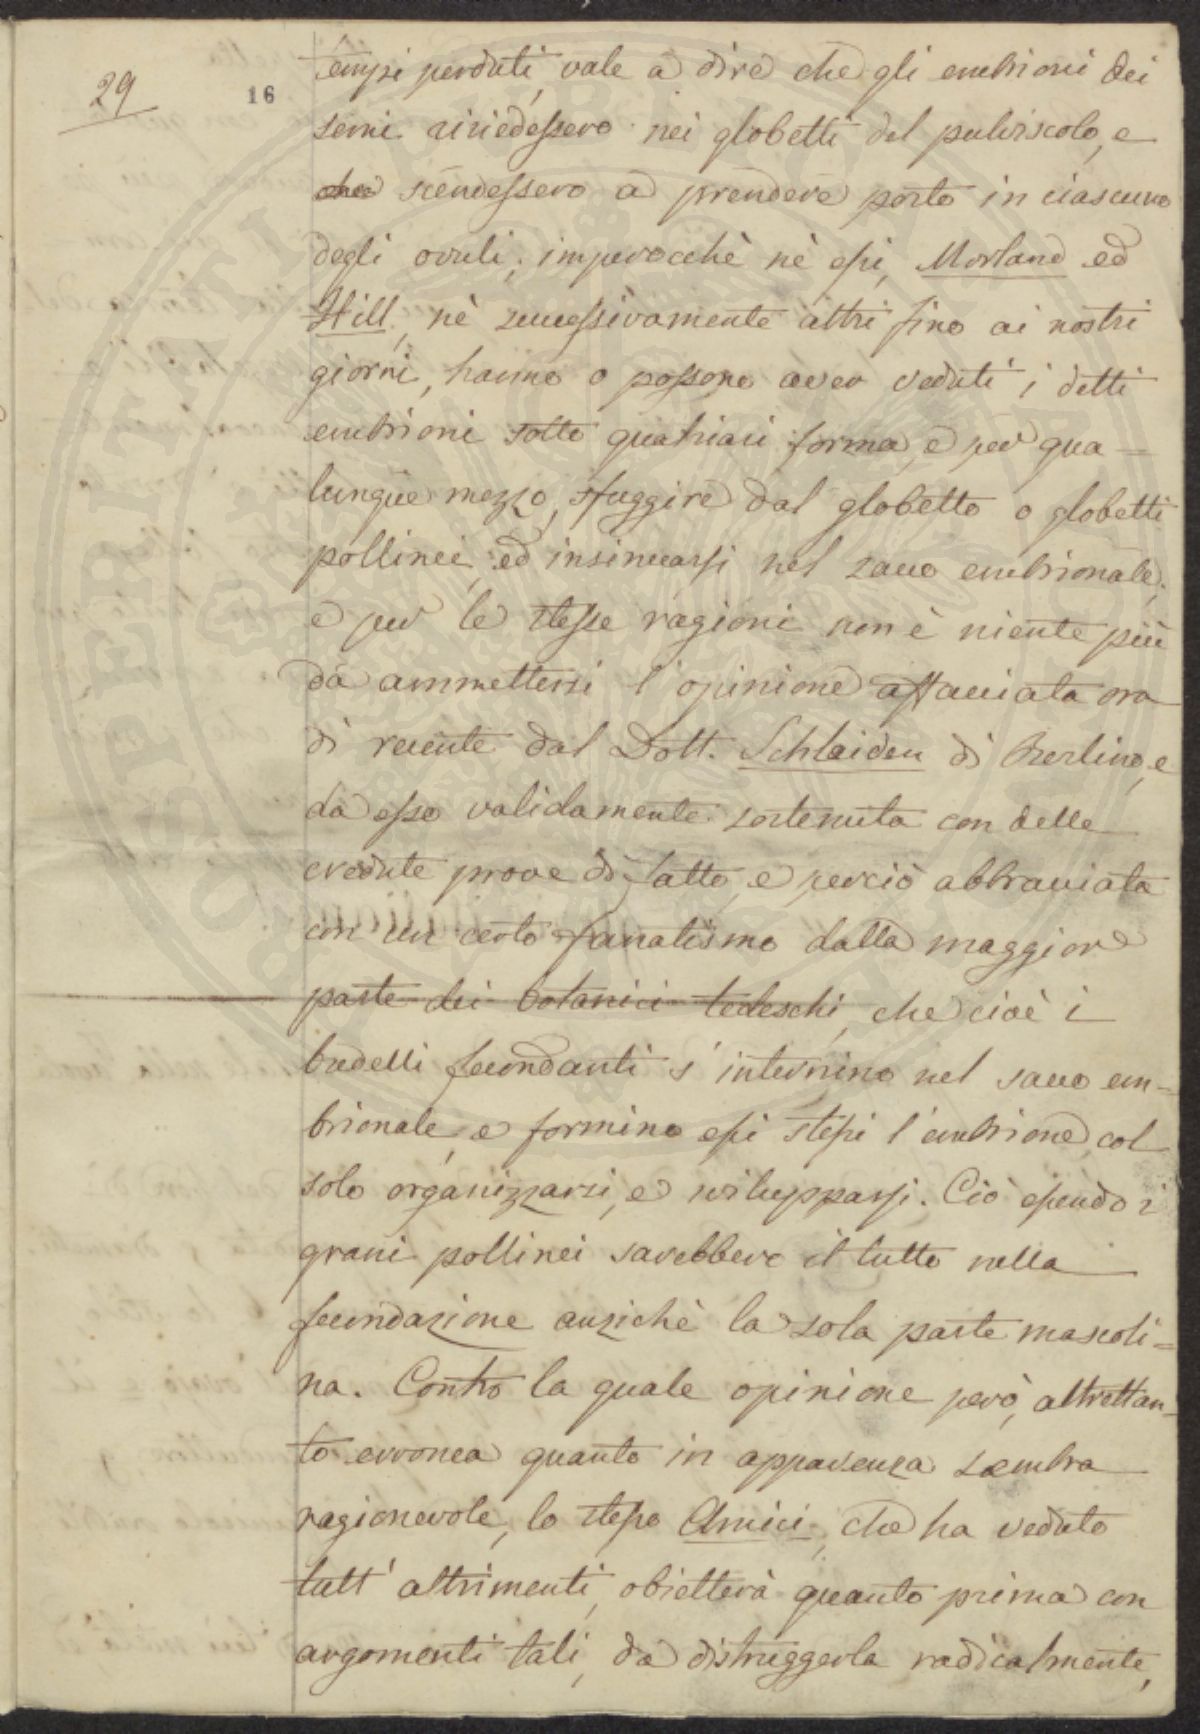 29
16
tempi perduti, vale a dire che gli embrioni dei
semi risiedessero nei globetti del pulviscolo, e
che scendessero a prendere posto in ciascuno
degli ovuli; imperocchè nè essi, Morland ed
Hill, nè successivamente altri fino ai nostri
giorni, hanno o possono aver veduti i detti
embrioni sotto qualsiasi forma, e per qua=
lunque mezzo, sfuggire dal globetto o globetti
pollinei, ed insinuarsi nel sacco embrionale;
e per le stesse ragioni non è niente più
da ammettersi l'opinione affacciata ora
di recente dal Dott. Schleiden di Berlino, e
da esso validamente sostenuta con delle
credute prove di fatto, e perciò abbracciata
con un certo fanatismo dalla maggiore
parte dei botanici tedeschi, che cioè i
budelli fecondanti s'internino nel sacco em=
brionale, e formino essi stessi l'embrione col
solo organizzarsi, e svilupparsi. Ciò essendo i
grani pollinei sarebbero il tutto nella
fecondazione anzichè la sola parte mascoli=
na. Contro la quale opinione però, altrettan=
to erronea quanto in apparenza sembra
ragionevole, lo stesso Amici, che ha veduto
tutt'altrimenti, obietterà quanto prima con
argomenti tali, da distruggerla radicalmente,